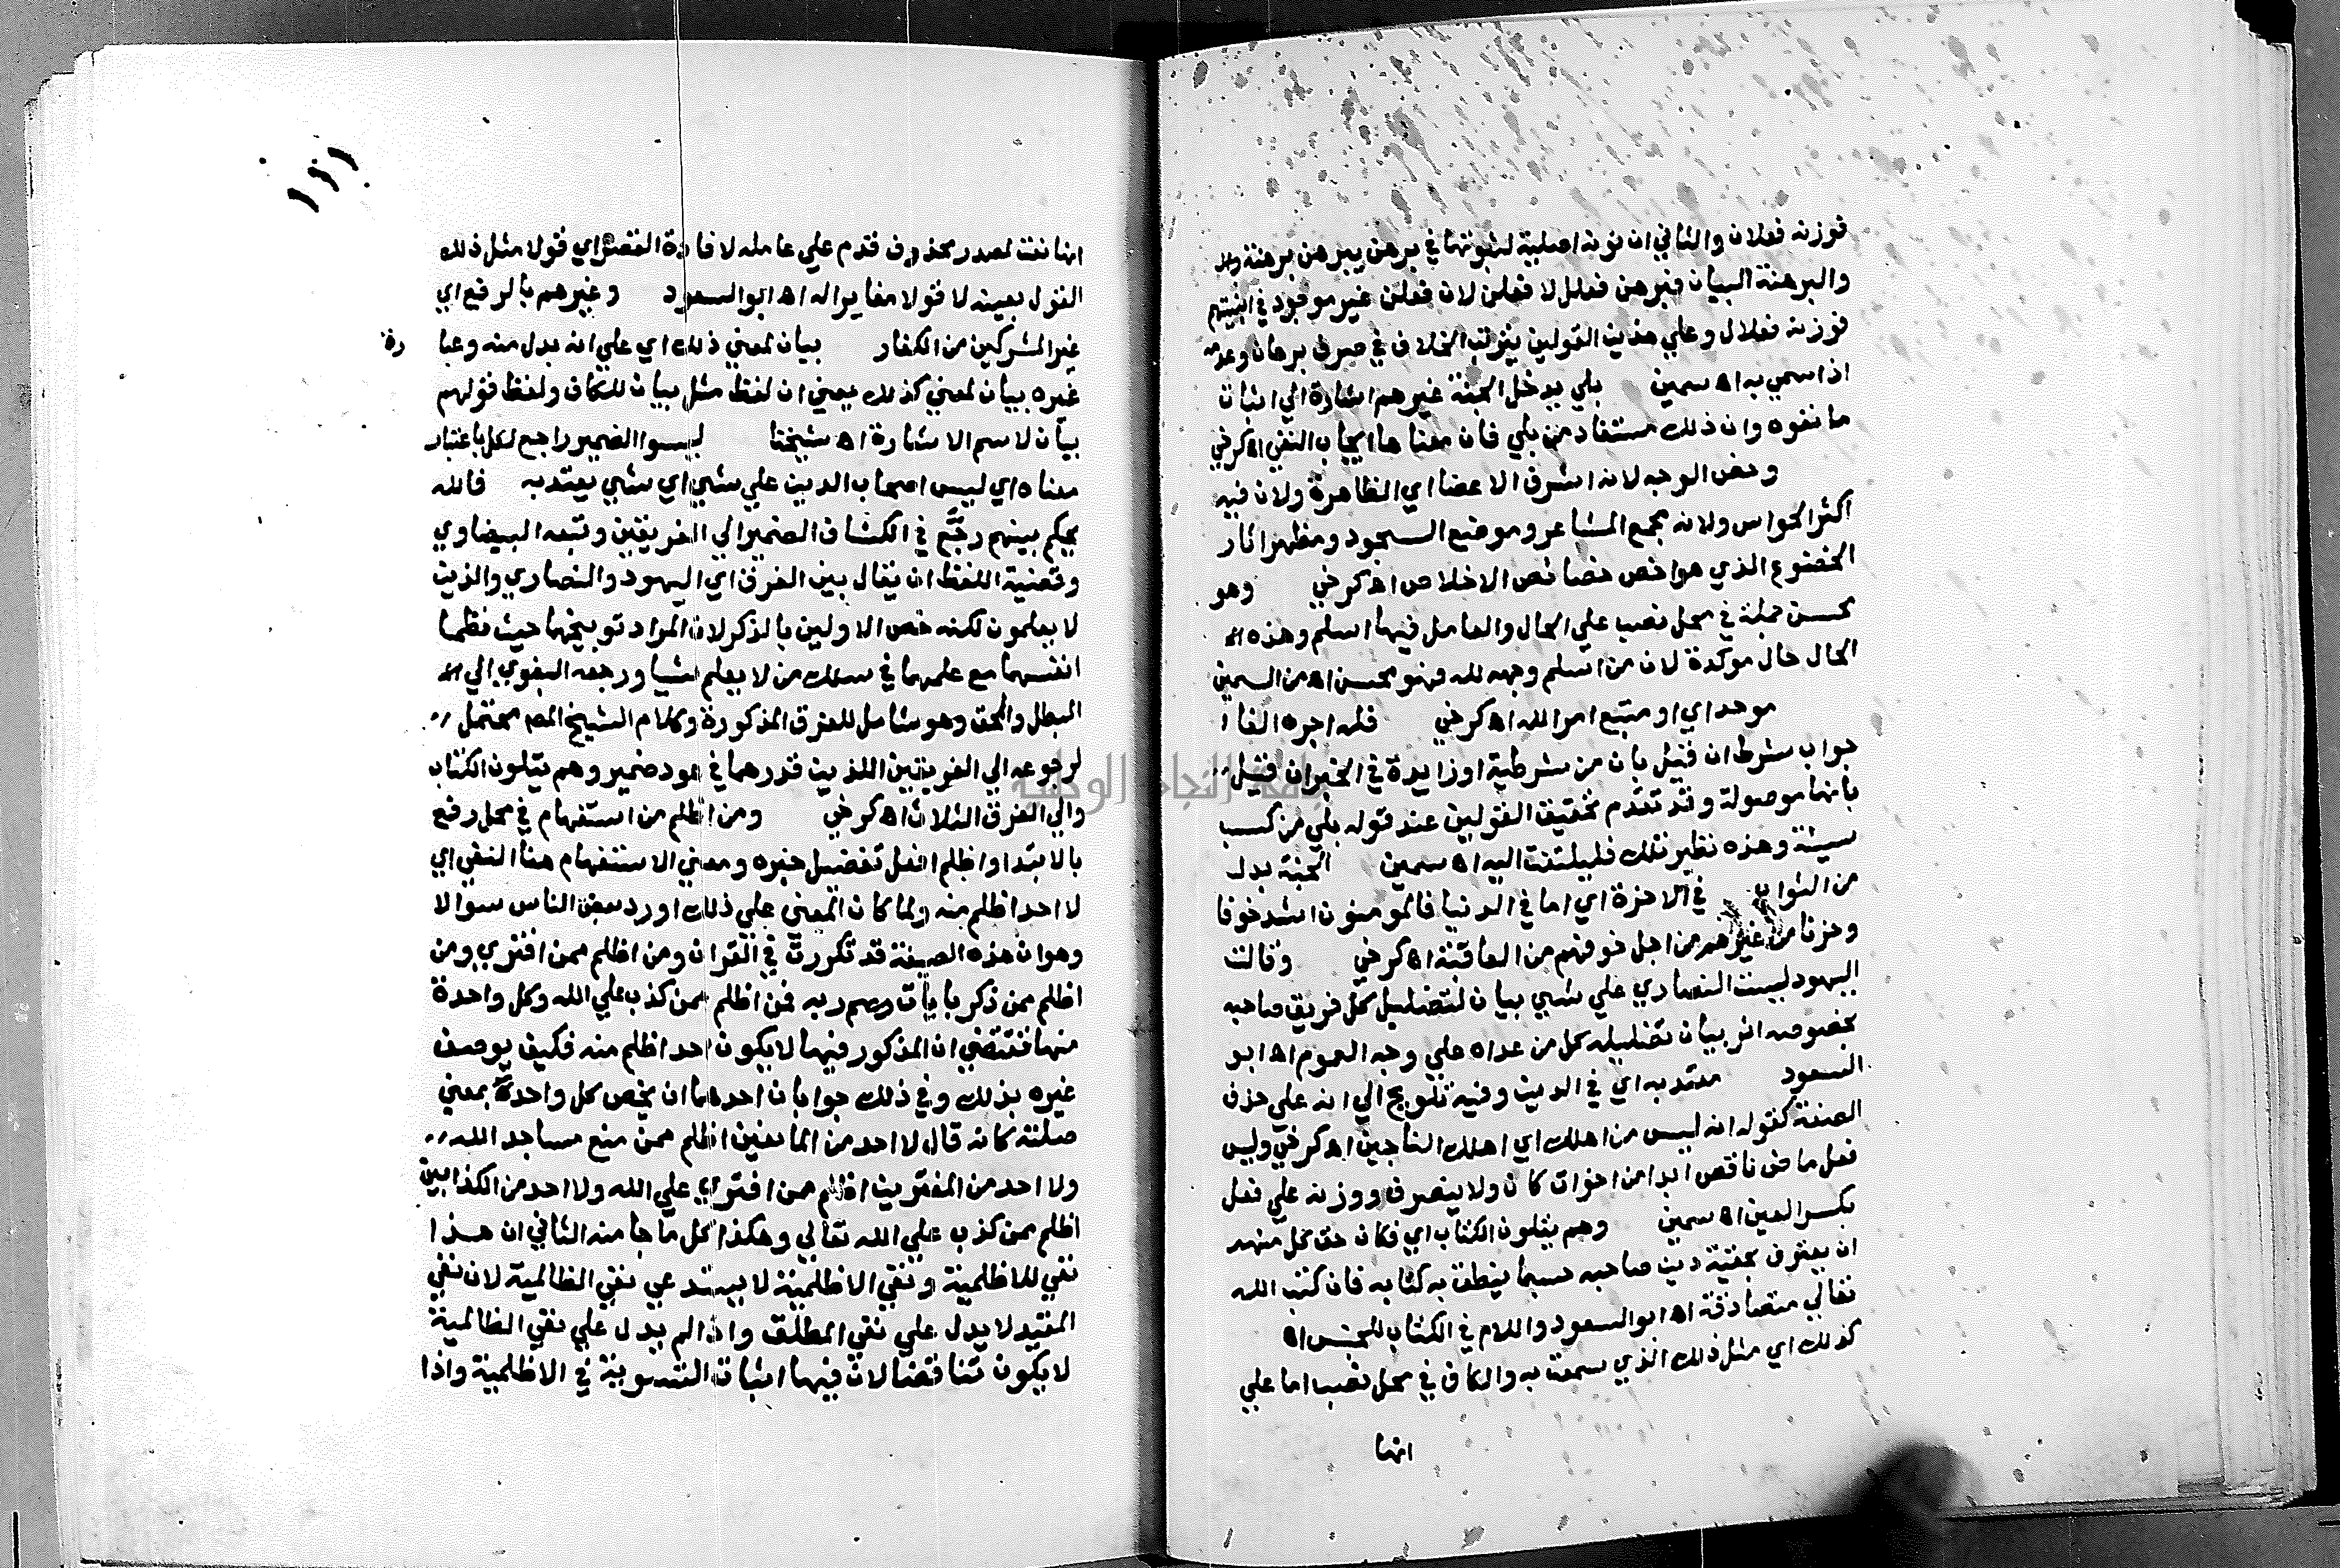 فوزنه فعلان والثاني ان نونه اصلية لثبوتها في برهن يبرهن برهنة
والبرهنة البيان فبرهن فعلل لا فعلن لان فعلن غير موجود في ابنيتهم
فوزنه فعلال وعلي هذين القولين يترتب الخلاف في صرف برهان وعدمه
اذا سمي به اه سمين بلي يدخل الجنة غيرهم اشارة الي اثبات
ما نفوه وان ذلك مستفاد من بلي فان معناها ايجاب النفي اه كرخي
وخص الوجه لانه اشرف الاعضا اي الظاهرة ولان فيه
اكثر الحواس ولانه مجمع المشاعر وموضع السجود ومظهر اثار
الخضوع الذي هو اخص خصائص الاخلاص اه كرخي وهو
محسن جملة في محل نصب علي الحال والعامل فيها اسلم وهذه
الحال حال موكدة لان من اسلم وجهه لله فهو محسن اه من السمين
موحد اي او متبع امر الله اه كرخي فله اجره الفا
جواب شرط ان قيل بان من شرطية او زايدة في الخبر ان قيل
بانها موصولة وقد تقدم تحقيق القولين عند قوله بلي من كسب
سيئة وهذه نظير تلك فليلتفت اليه اه سمين الجنة بدل
من الثواب في الاخرة اي اما في الدنيا فالمومنون اشد خوفا
وحزنا من غيرهم من اجل خوفهم من العاقبة اه كرخي وقالت
اليهود ليست النصاري علي شي بيان لتضليل كل فريق صاحبه
بخصوصه اثر بيان تضليله كل من عداه علي وجه العموم اه ابو
السعود معتد به اي في الدين وفيه تلويح الي انه علي حذف
الصفة كقوله انه ليس من اهلك اي اهلك الناجين اه كرخي وليس
فعل ماض ناقص ابدا من اخوات كان ولا يتصرف ووزنه علي فعل
بكسر العين اه سمين وهم يتلون الكتاب اي فكان حق كل منهم
ان يعترف بحقية دين صاحبه حسبما ينطق به كتابه فان كتب الله
تعالي متصادقة اه ابو السعود واللام في الكتاب للجنس اه
كذلك اي مثل ذلك الذي سمعت به والكاف في محل نصب اما علي
انها
انها نعت لمصدر محذوف قدم علي عامله لافادة القصر اي قولا مثل ذلك
القول بعينه لا قولا مغايرا له اه ابو السعود وغيرهم بالرفع اي
غير المشركين من الكفار بيان لمعني ذلك اي علي انه بدل منه وعبا رة
غيره بيان لمعني كذلك يعني ان لفظ مثل بيان للكاف ولفظ قولهم
بيان لاسم الاشارة اه شيخنا ليسوا الضمير راجع لكل باعتبار
معناه اي ليس اصحاب الدين علي شي اي شي يعتد به فالله
يحكم بينهم رجع في الكشاف الضمير الي الفريقين وتبعه البيضاوي
وقضية اللفظ ان يقال بين الفرق اي اليهود والنصاري والذين
لا يعلمون لكنه خص الاولين بالذكر لان المراد توبيخهما حيث نظما
انفسهما مع علمهما في سلك من لا يعلم شيا ورجعه البغوي الي
المبطل والمحق وهو شامل للفرق المذكورة وكلام الشيخ المص محتمل
لرجوعه الي الفريقين اللذين قدرهما في عود ضمير وهم يتلون الكتاب
والي الفرق الثلاث اه كرخي ومن اظلم من استفهام في محل رفع
بالابتدا واظلم افعل تفضيل خبره ومعني الاستفهام هنا النفي اي
لا احد اظلم منه ولما كان المعني علي ذلك اورد بعض الناس سوالا
وهو ان هذه الصيغة قد تكررت في القران ومن اظلم ممن افتري ومن
اظلم ممن ذكر بايات ربه فمن اظلم ممن كذب علي الله وكل واحدة
منها تقتضي ان المذكور فيها لا يكون احد اظلم منه فكيف يوصف
غيره بذلك وفي ذلك جوابان احدهما ان يخص كل واحدة بمعني
صلته كانه قال لا احد من المانعين اظلم ممن منع مساجد الله
ولا احد من المفترين اظلم ممن افتري علي الله ولا احد من الكذابين
اظلم ممن كذب علي الله تعالي وهكذا كل ما جا منه الثاني ان هذا
نفي للاظلمية ونفي الاظلمية لا يستدعي نفي الظالمية لان نفي
المقيد لا يدل علي نفي المطلق واذا لم يدل علي نفي الظالمية
لا يكون تناقضا لان فيها اثبات التسوية في الاظلمية واذا